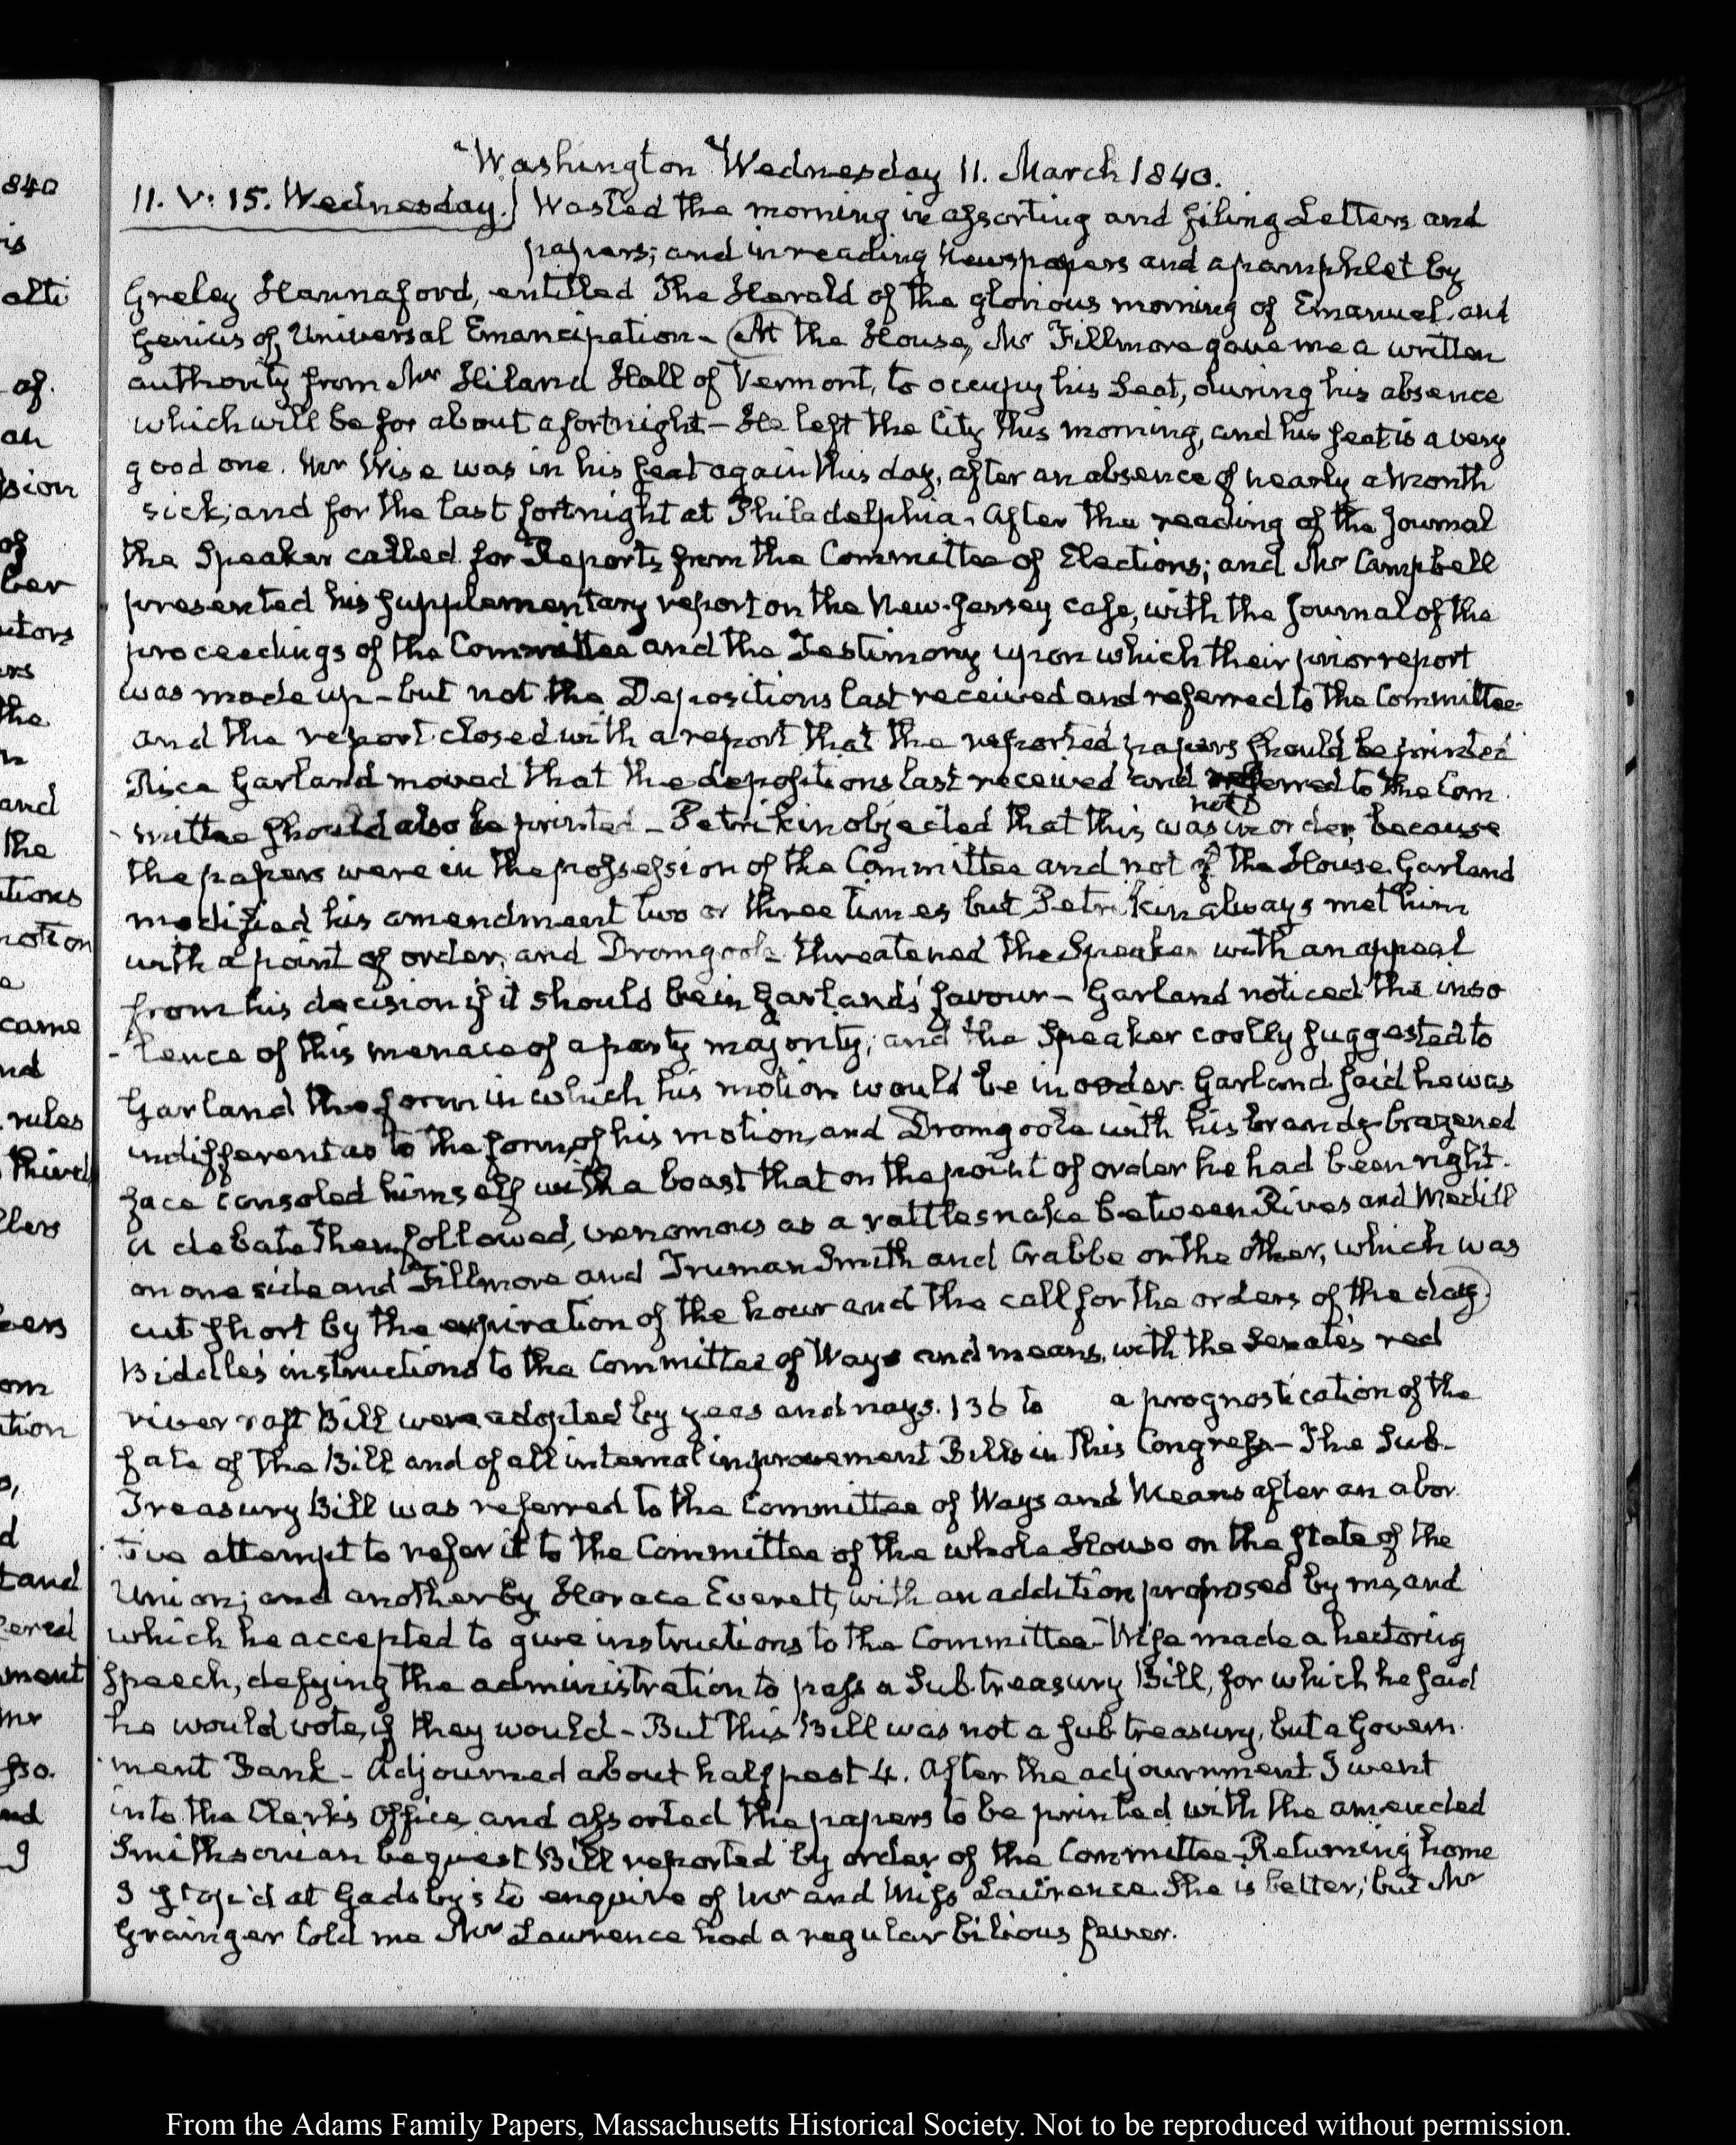 840
is
alti
of.
an
sion
of
ber
utors
ers
the
n
and
the
tions
notion
e
came
nd
rules
third
llers
bers
om
tion
s,
d
tand
ered
ment
mr
sso.
nd
g
Washington Wednesday 11. March 1840.
11. V: 15. Wednesday.} Wasted the morning in assorting and filing Letters and
papers; and in reading Newspapers and a pamphlet by
Greley Hannaford, entitled The Herald of the glorious morning of Emanuel and
Genius of Universal Emancipation – At the House, Mr Fillmore gave me a written
authority from Mr Hiland Hall of Vermont, to occupy his Seat, during his absence
which will be for about a fortnight – He left the City this morning, and his seat is a very
good one. Mr Wise was in his seat again this day, after an absence of nearly a month
sick, and for the last fortnight at Philadelphia. After the reading of the Journal
the Speaker called for Reports from the Committee of Elections; and Mr Campbell
presented his supplementary report on the New-Jersey case, with the Journal of the
proceedings of the Committee and the Testimony upon which their prior report
was made up – but not the Depositions last received and referred to the Committee
and the report closed with a report that the reported papers should be printed
Rice Garland moved that the depositions last received and referred to the Com
mittee should also be printed – Petrikin objected that this was not in order, because
the papers were in the possession of the Committee and not of the House. Garland
modified his amendment two or three times but Petrikin always met him
with a point of order, and Dromgoole threatened the Speaker with an appeal
from his decision if it should be in Garland's favour – Garland noticed the inso
-lence of this menace of a party majority; and the Speaker coolly suggested to
Garland the form in which his motion would be in order. Garland said he was
indifferent as to the form of his motion, and Dromgoole with his brandy-brazened
face consoled himself with a boast that on the point of order he had been right.
A debate then followed, venomous as a rattlesnake between Rives and Medill
on one side and Fillmore and Truman Smith and Crabbe on the other, which was
cut short by the expiration of the hour and the call for the orders of the day.
Biddle's instructions to the Committee of Ways and means, with the Senate's red
river raft Bill were adopted by yeas and nays. 136 to a prognostication of the
fate of the Bill and of all internal improvement Bills in this Congress – The Sub-
Treasury Bill was referred to the Committee of Ways and Means after an abor
tive attempt to refer it to the Committee of the whole House on the state of the
Union; and another by Horace Everett, with an addition proposed by me, and
which he accepted to give instructions to the Committee – Wise made a hectoring
speech, defying the administration to pass a Sub-treasury Bill, for which he said
he would vote, if they would – But this Bill was not a sub treasury, but a Govern-
ment Bank – Adjourned about half past 4. After the adjournment I went
into the Clerk's Office, and assorted the papers to be printed with the amended
Smithsonian bequest Bill reported by order of the Committee – Returning home
I stop'd at Gadsby's to enquire of Mr and Miss Lawrence. She is better; but Mr
Grainger told me Mr Lawrence had a regular bilious fever.
From the Adams Family Papers, Massachusetts Historical Society. Not to be reproduced without permission.